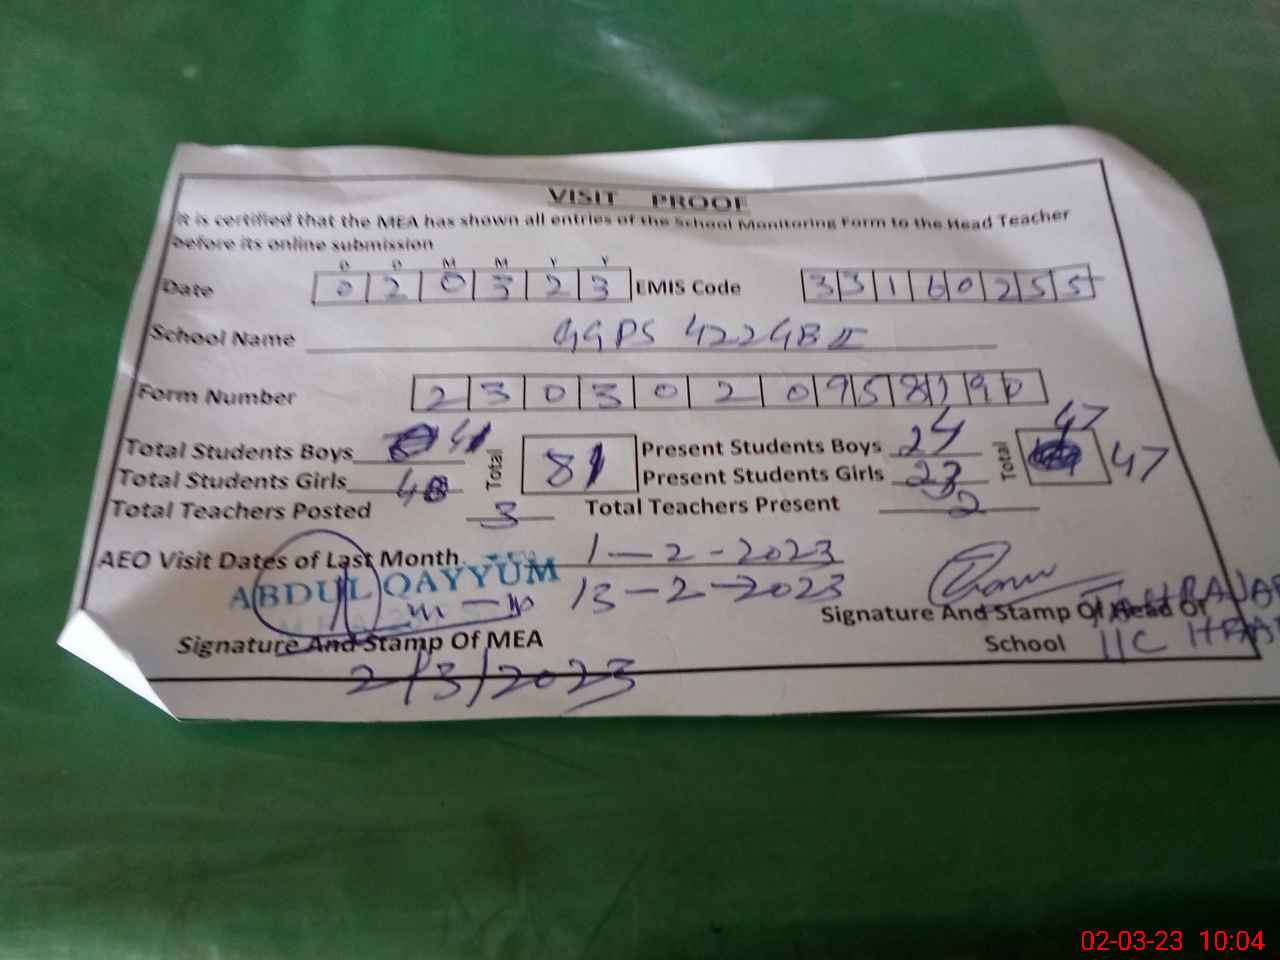 VISIT PROOF
It is certified that the MEA has shown all entries of the School Monitoring Form to the Head Teacher
before its online submission
D D M M Y Y
Date 0 2 0 3 2 3 EMIS Code 3 3 1 6 0 2 5 5
School Name GGPS 422GB II
Form Number 2 3 0 3 0 2 0 9 5 8 1 9 0
Total Students Boys 41 Total 81 Present Students Boys 24 Total 47 47
Total Students Girls 40 Present Students Girls 23
Total Teachers Posted 3 Total Teachers Present 2
AEO Visit Dates of Last Month 1-2-2023
ABDUL QAYYUM 13-2-2023
Signature And Stamp Of MEA Signature And Stamp Of Head Of
School
2/3/2023
02-03-23 10:04